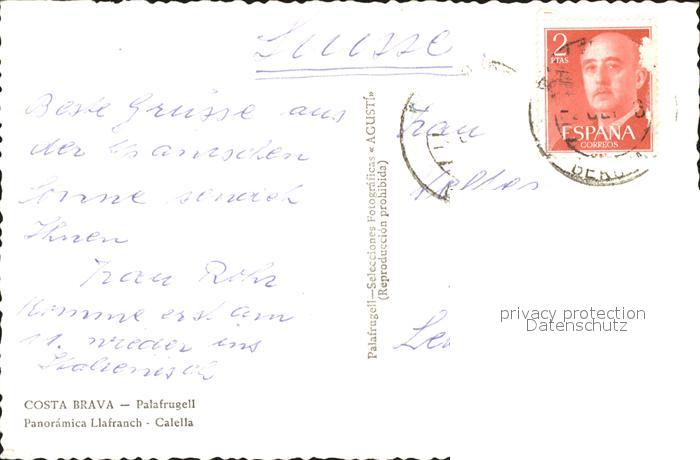 Suisse
Beste Grüsse aus
der spanischen
Sonne sendet
Ihnen
Frau Rohr
Komme erst am
11. wieder ins
Italienisch
COSTA BRAVA — Palafrugell
Panorámica Llafranch - Calella
Palafrugell—Selecciones Fotográficas «AGUSTÍ»
(Reproducción prohibida)
Frau
2
PTAS
ESPAÑA
CORREOS
privacy protection
Datenschutz